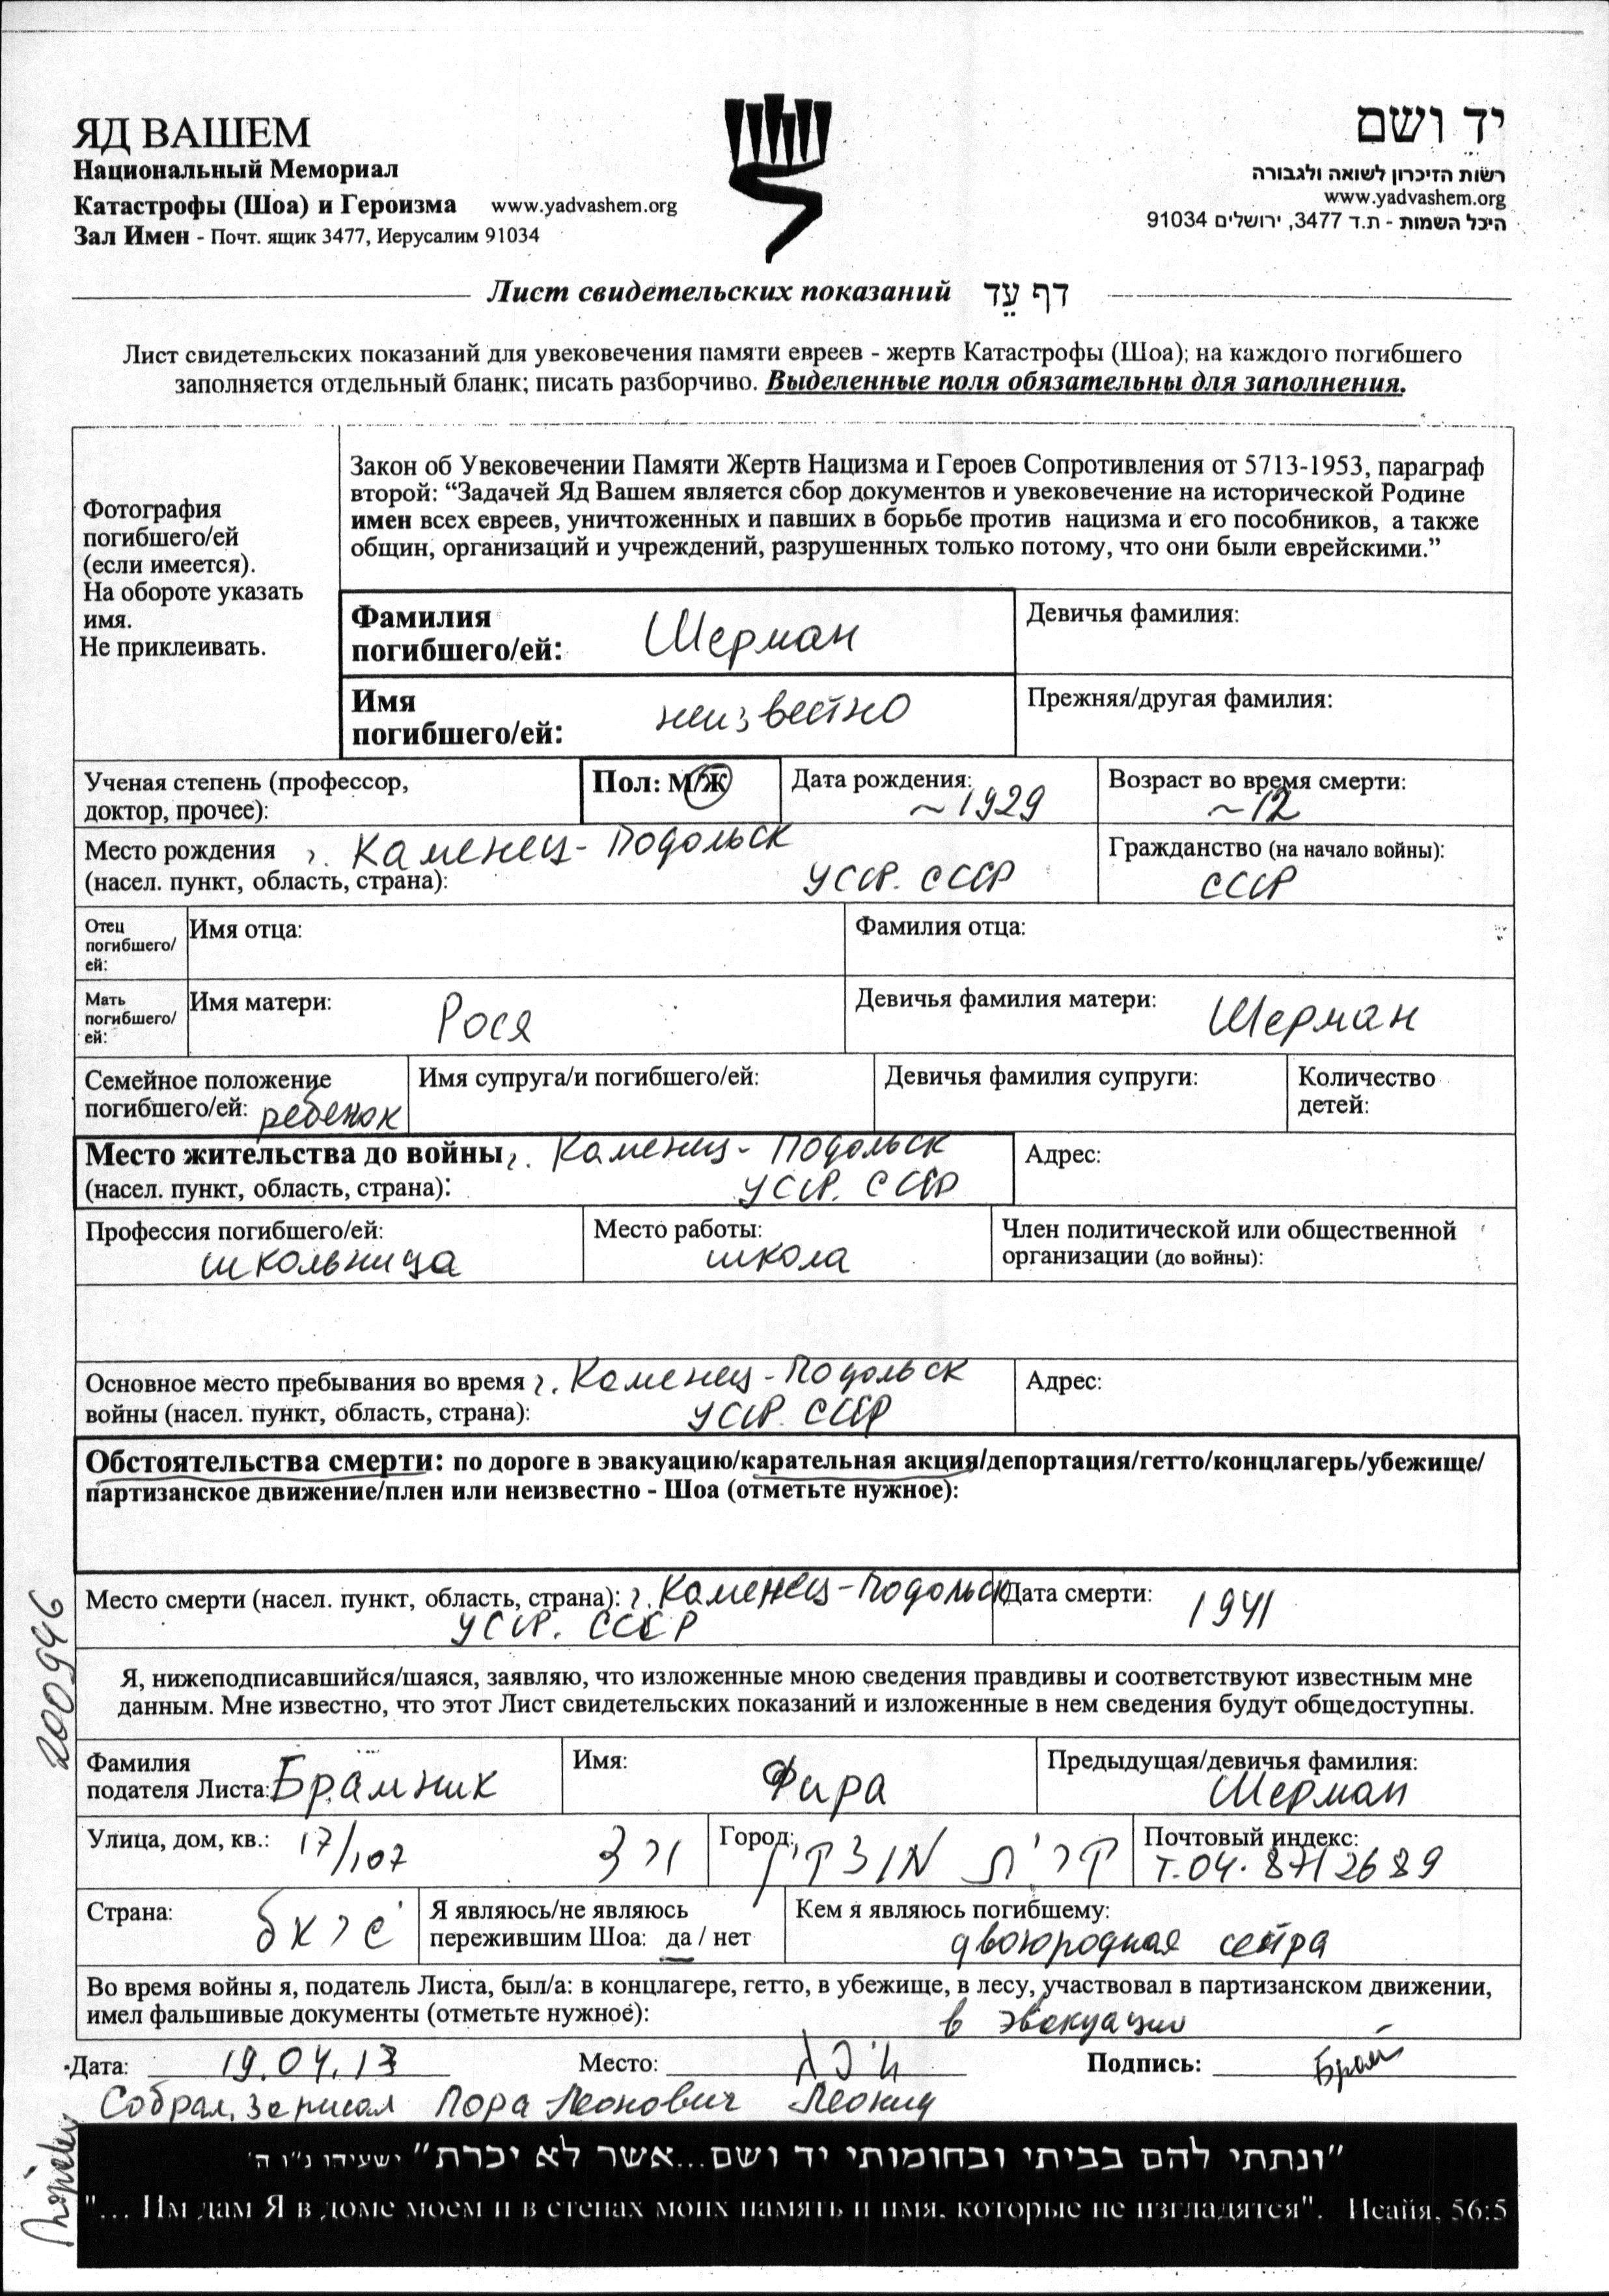 ЯД ВАШЕМ
Национальный Мемориал
Катастрофы (Шоа) и Героизма www.yadvashem.org
Зал Имен - Почт. ящик 3477, Иерусалим 91034
יד ושם
רשות הזיכרון לשואה ולגבורה
www.yadvashem.org
היכל השמות - ת.ד 3477, ירושלים 91034
Лист свидетельских показаний דף עֵד
Лист свидетельских показаний для увековечения памяти евреев - жертв Катастрофы (Шоа); на каждого погибшего
заполняется отдельный бланк; писать разборчиво. Выделенные поля обязательны для заполнения.
Фотография
погибшего/ей
(если имеется).
На обороте указать
имя.
Не приклеивать.
Закон об Увековечении Памяти Жертв Нацизма и Героев Сопротивления от 5713-1953, параграф
второй: “Задачей Яд Вашем является сбор документов и увековечение на исторической Родине
имен всех евреев, уничтоженных и павших в борьбе против нацизма и его пособников, а также
общин, организаций и учреждений, разрушенных только потому, что они были еврейскими.”
Фамилия
погибшего/ей: Шерман
Девичья фамилия:
Имя
погибшего/ей: неизвестно
Прежняя/другая фамилия:
Ученая степень (профессор,
доктор, прочее):
Пол: М/Ж
Дата рождения: ~1929
Возраст во время смерти: ~12
Место рождения г. Каменец-Подольск
(насел. пункт, область, страна): УССР. СССР
Гражданство (на начало войны):
СССР
Отец
погибшего/
ей:
Имя отца:
Фамилия отца:
Мать
погибшего/
ей:
Имя матери: Рося
Девичья фамилия матери: Шерман
Семейное положение
погибшего/ей: ребенок
Имя супруга/и погибшего/ей:
Девичья фамилия супруги:
Количество
детей:
Место жительства до войны г. Каменец-Подольск
(насел. пункт, область, страна): УССР. СССР
Адрес:
Профессия погибшего/ей:
школьница
Место работы:
школа
Член политической или общественной
организации (до войны):
Основное место пребывания во время г. Каменец-Подольск
войны (насел. пункт, область, страна): УССР. СССР
Адрес:
Обстоятельства смерти: по дороге в эвакуацию/карательная акция/депортация/гетто/концлагерь/убежище/
партизанское движение/плен или неизвестно - Шоа (отметьте нужное):
Место смерти (насел. пункт, область, страна): г. Каменец-Подольск
УССР. СССР
Дата смерти: 1941
Я, нижеподписавшийся/шаяся, заявляю, что изложенные мною сведения правдивы и соответствуют известным мне
данным. Мне известно, что этот Лист свидетельских показаний и изложенные в нем сведения будут общедоступны.
Фамилия
подателя Листа: Брамник
Имя: Фира
Предыдущая/девичья фамилия:
Шерман
Улица, дом, кв.: 17/107
Город: קרית מוצקין
Почтовый индекс:
Т.04.8712689
Страна:
Я являюсь/не являюсь
пережившим Шоа: да / нет
Кем я являюсь погибшему:
двоюродная сестра
Во время войны я, податель Листа, был/а: в концлагере, гетто, в убежище, в лесу, участвовал в партизанском движении,
имел фальшивые документы (отметьте нужное): в эвакуации
Дата: 19.04.13 Место: Подпись: Брам
Собрал, записал Пора Леонович Леонид
200946
"ונתתי להם בביתי ובחומותי יד ושם...אשר לא יכרת" ישעיהו נ"ו ה'
"... Им дам Я в доме моем и в стенах моих память и имя, которые не изгладятся". Исайя, 56:5